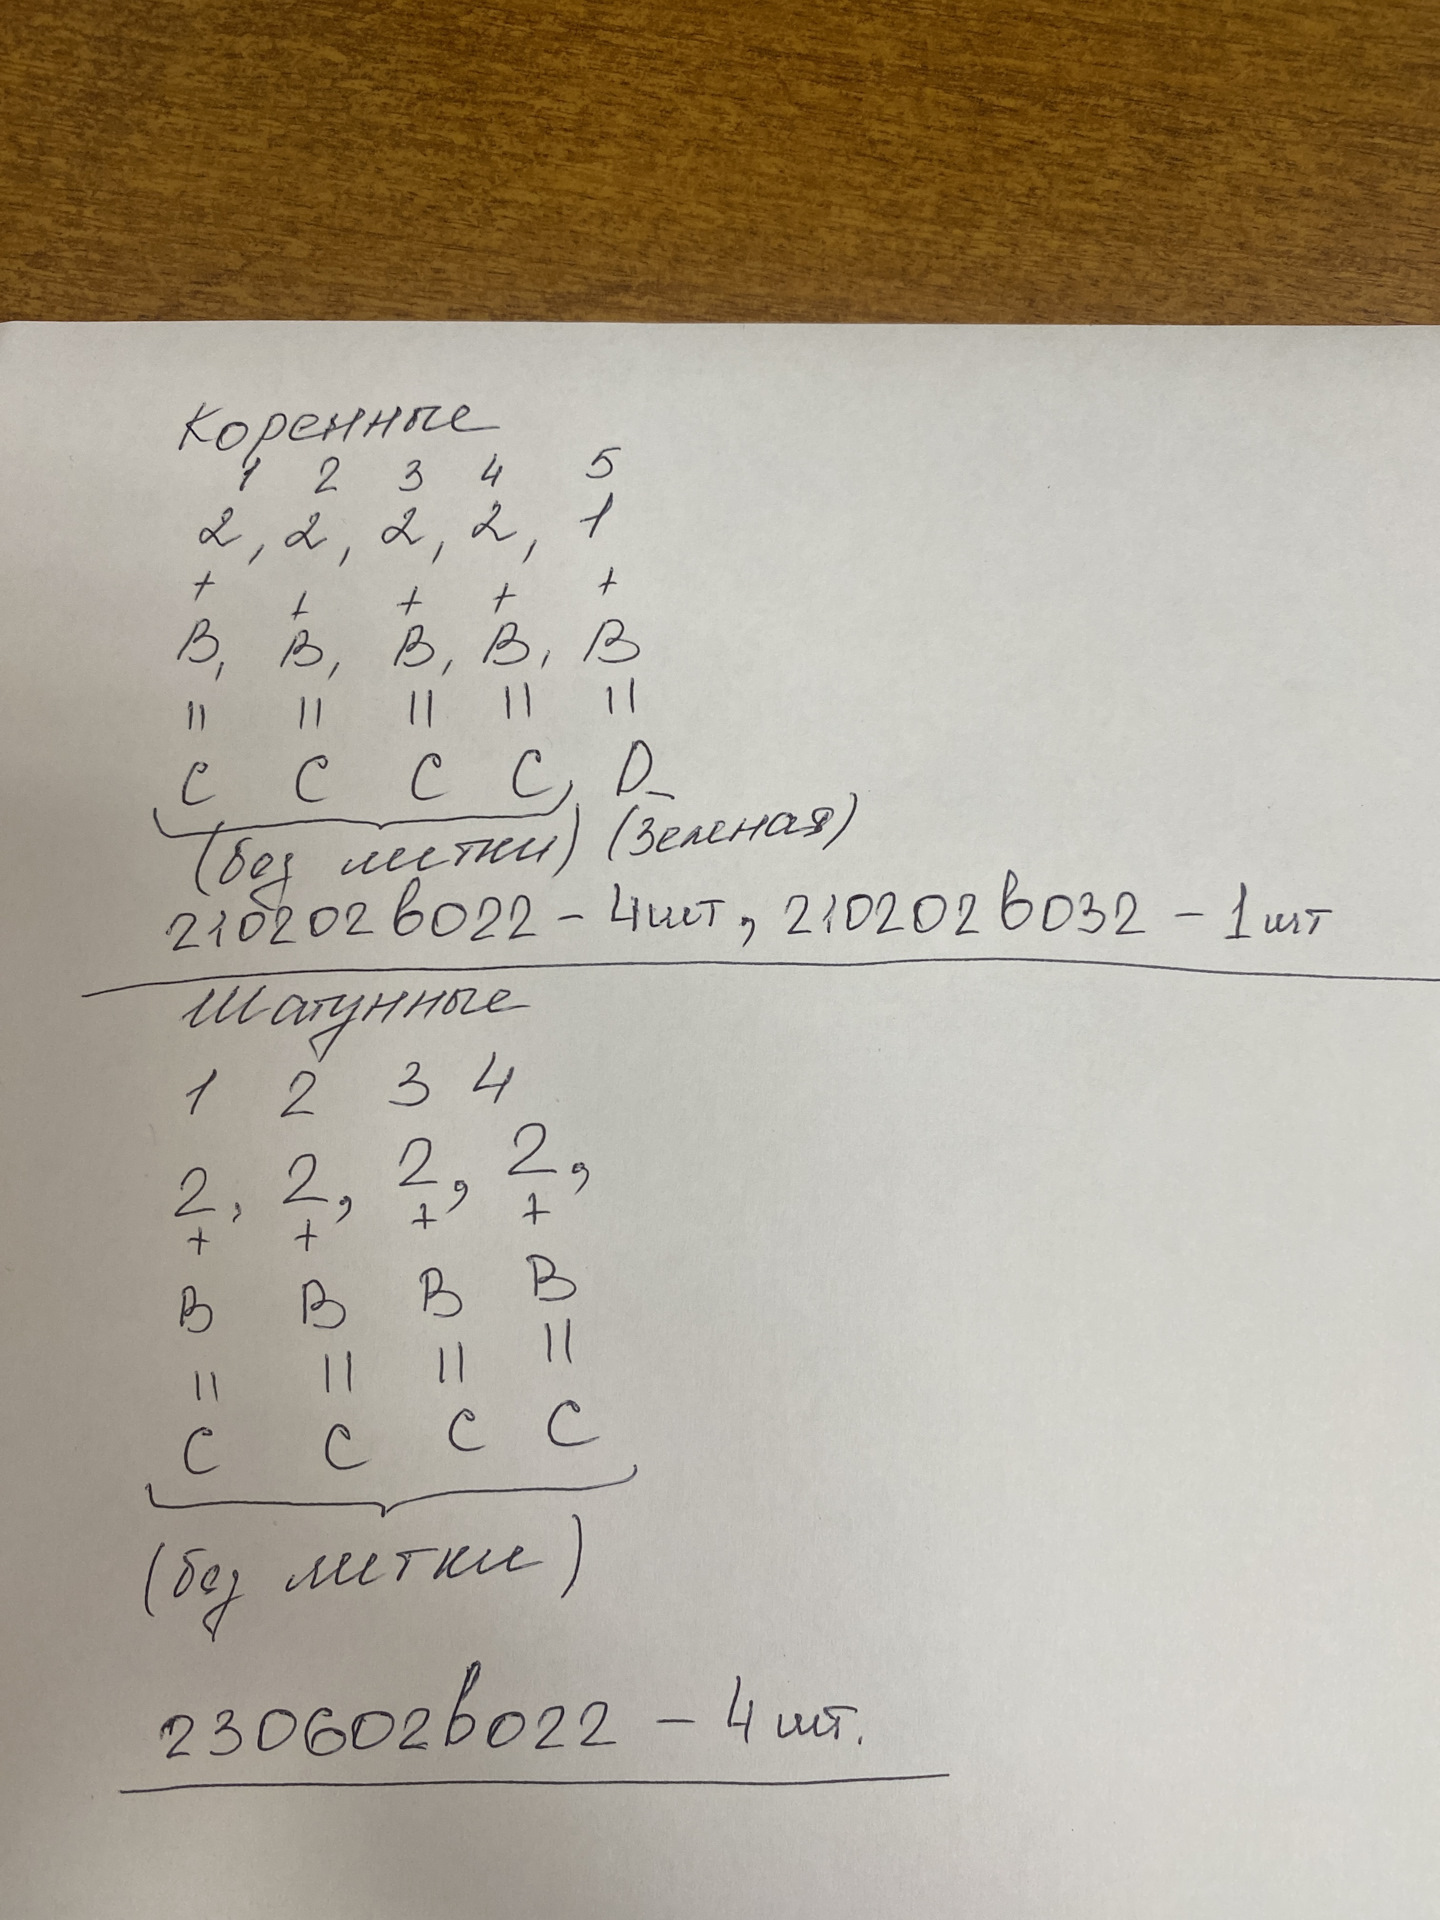 Коренные
1 2 3 4 5
2, 2, 2, 2, 1
+ + + + +
B, B, B, B, B
|| || || || ||
C C C C, D
(без метки) (Зеленая)
210202b022 - 4шт, 210202b032 - 1шт
Шатунные
1 2 3 4
2, 2, 2, 2,
+ + + +
B B B B
|| || || ||
C C C C
(без метки)
230602b022 - 4шт.